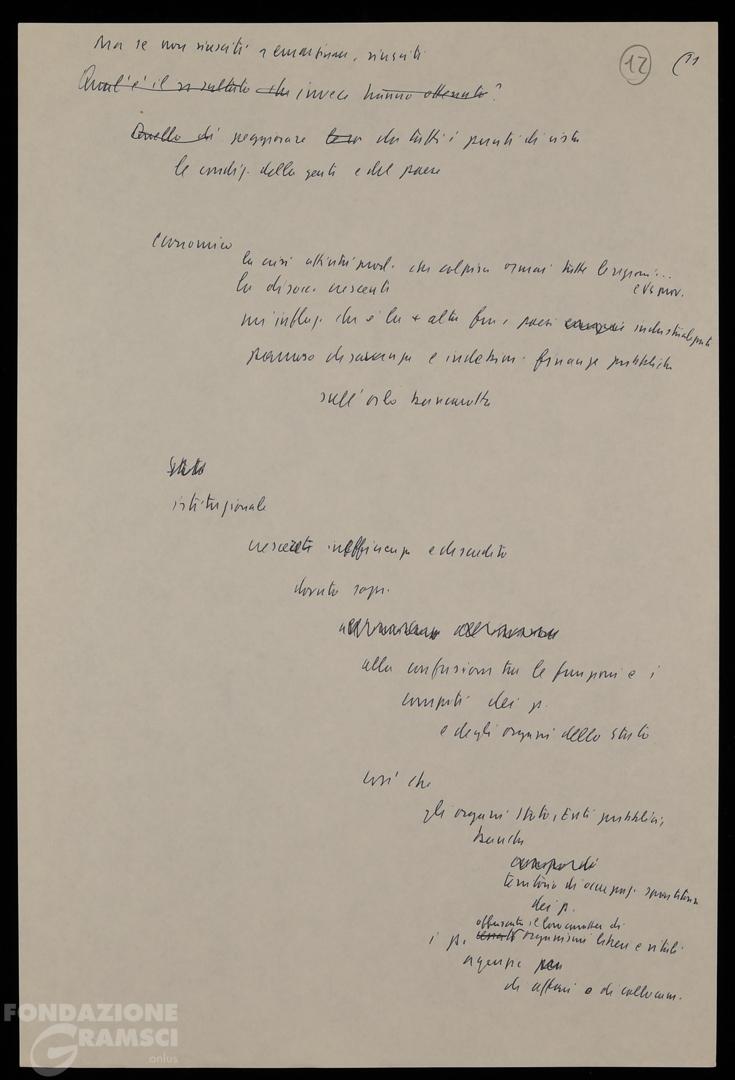 Ma se non riusciti a emarginare, riusciti
12
Qual'è il risultato che invece hanno ottenuto?
Quello di peggiorare da tutti i punti di vista
le condiz. della gente e del paese
economico
la crisi attività prod. che colpisce ormai tutte le regioni...
la disocc. crescente
un'inflaz. che è la + alta fra i paesi industrializzati
pauroso disavanzo e indebitam. finanze pubbliche
sull'orlo bancarotta
Stato
istituzionale
crescente inefficienza e discredito
dovuto sopr.
alla confusione tra le funzioni e i
compiti dei p.
e degli organi dello Stato
così che
gli organi Stato, Enti pubblici,
banche
territorio di occupaz. spartitoria
dei p.
offuscato il loro carattere di
i p. organismi liberi e vitali
agenzie
di affari o di collocam.
FONDAZIONE
GRAMSCI
onlus